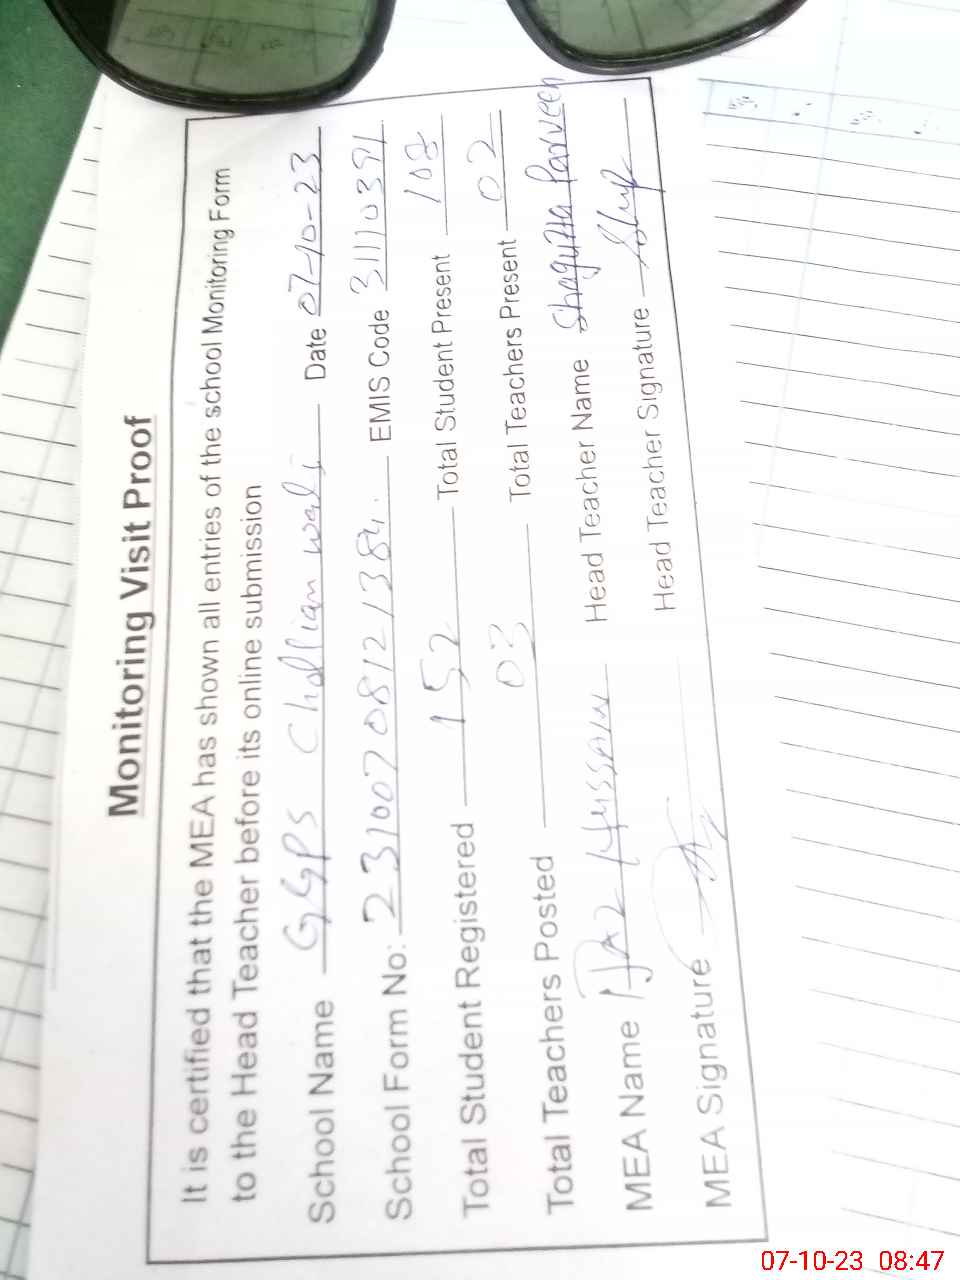 Monitoring Visit Proof
It is certified that the MEA has shown all entries of the school Monitoring Form
to the Head Teacher before its online submission
School Name GGPS Chollian wali Date 07-10-23
School Form No: 23100708121384. EMIS Code 31110391
Total Student Registered 152 Total Student Present 108
Total Teachers Posted 03 Total Teachers Present 02
MEA Name Hussain Head Teacher Name Shagufta Parveen
MEA Signature Head Teacher Signature
07-10-23 08:47